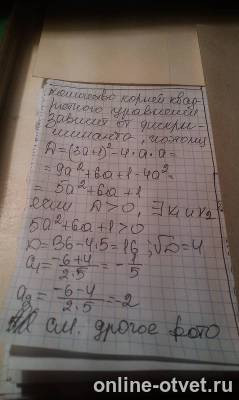 количество корней квад-
ратного уравнения
зависит от дискри-
минанта, поэтому
D=(3a+1)²-4·a·a=
=9a²+6a+1-4a²=
=5a²+6a+1
если D>0, ∃ x₁ и x₂
5a²+6a+1>0
D=36-4·5=16; √D=4
a₁=(-6+4)/(2·5)=-1/5
a₂=(-6-4)/(2·5)=-2
см. другое фото
online-otvet.ru